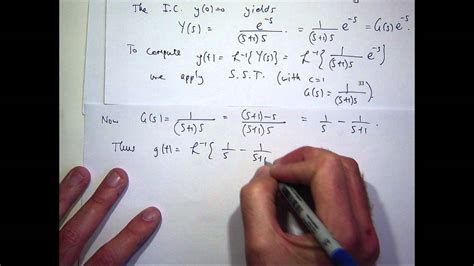 The I.C. y(0)=0 yields
Y(s) = e^{-s} / (s+1)s = 1/(s+1)s e^{-s} = G(s) e^{-s}
To compute y(t) = L^{-1}{Y(s)} = L^{-1}{ 1/(s+1)s e^{-s} }
we apply S.S.T. (with c=1
G(s) = 1/(s+1)s )
Now G(s) = 1/(s+1)s = (s+1)-s / (s+1)s = 1/s - 1/s+1.
Thus g(t) = L^{-1}{ 1/s - 1/s+1